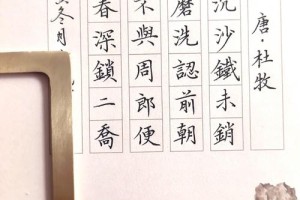 唐·杜牧
沉沙鐵未銷
磨洗認前朝
不與周郎便
春深鎖二喬
冬月